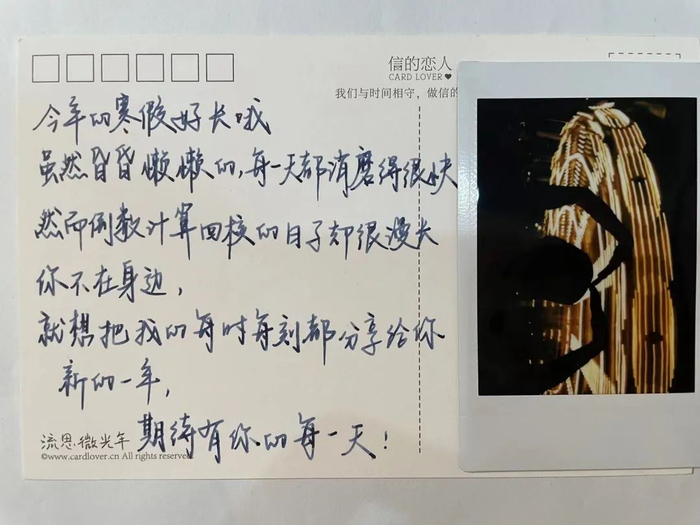 信的恋人
CARD LOVER
我们与时间相守，做信的
今年的寒假好长哦
虽然昏昏懒懒的，每一天都消磨得很快
然而倒数计算回校的日子却很漫长
你不在身边，
就想把我的每时每刻都分享给你
新的一年，
期待有你的每一天！
流思微光年
©www.cardlover.cn All rights reserved